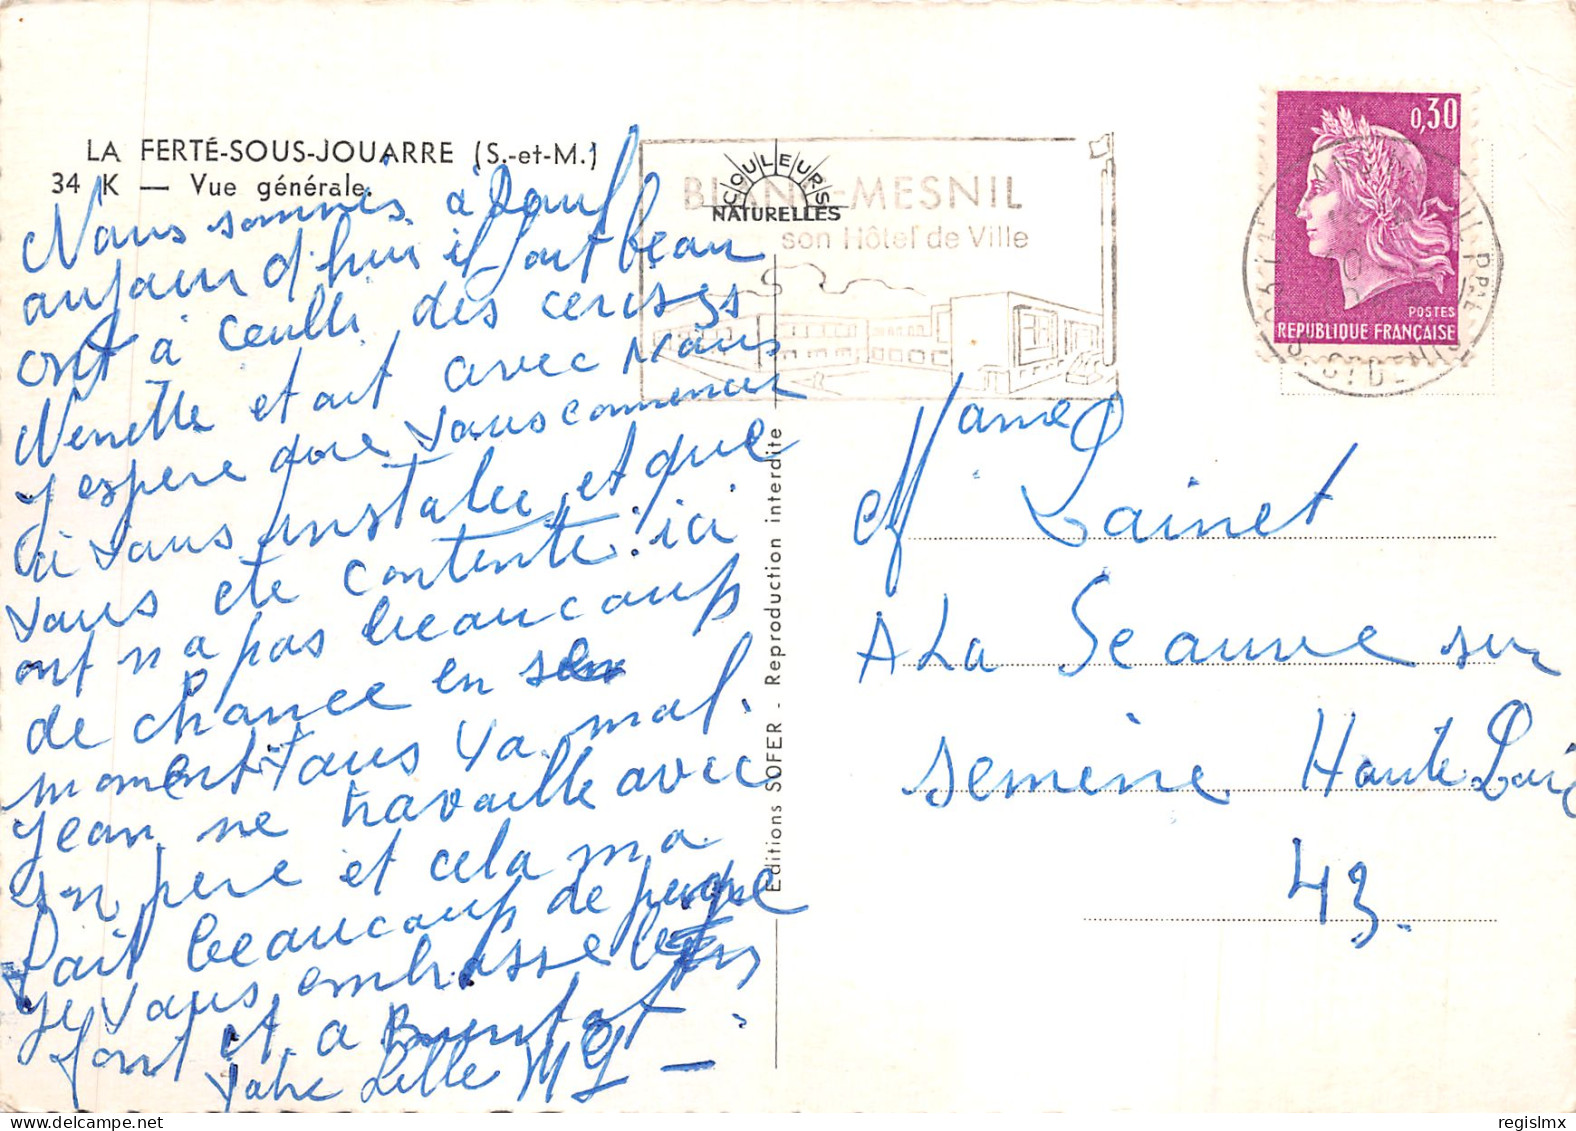 LA FERTÉ-SOUS-JOUARRE (S.-et-M.)
34 K — Vue générale.
Nous sommes à
aujourd'hui il fait beau
ont à ceulli des cerises
Nenette etait avec Nous
J espere que vous commencer
a vous instalee et que
vous ete contente! ici
ont n a pas beaucoup
de chance en se
moment tous va mal.
Jean ne travaille avec
son pere et cela m a
fait beaucoup de peine
Je vous embrasse bien
fort et a Bientot
votre fille MJ
COULEURS
NATURELLES
BLANC-MESNIL
son Hôtel de Ville
Editions SOFER - Reproduction interdite
0,30
POSTES
REPUBLIQUE FRANÇAISE
Mame
M Lainet
A La Seauve sur
Semene Haute Loire
43.
regislmx